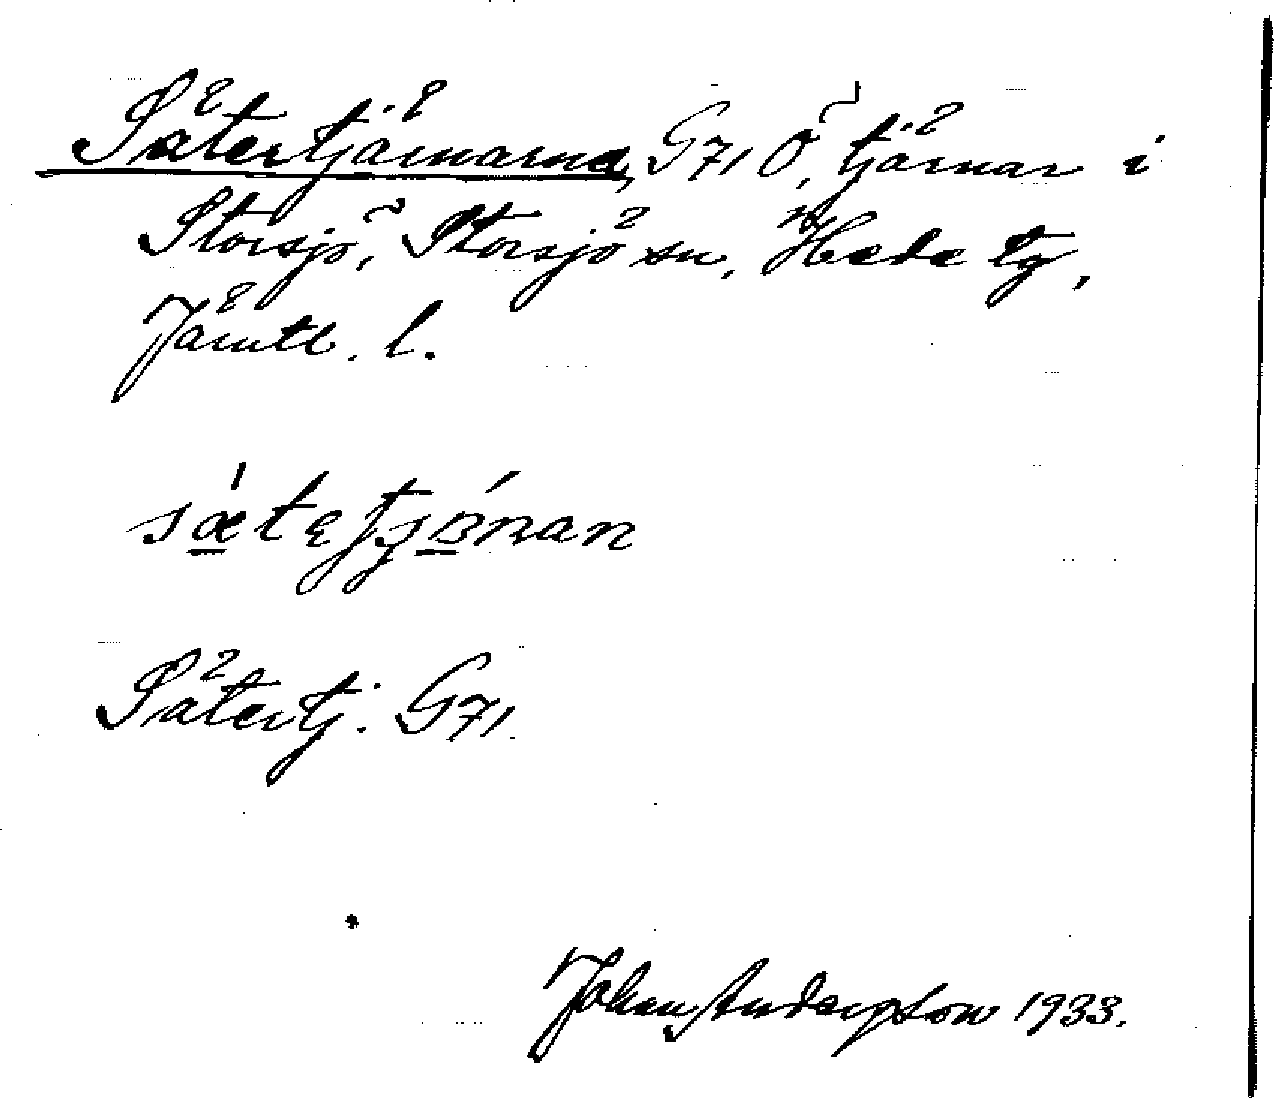 Sätertjärnarna, G71 Ö, tjärnar i
Storsjö, Storsjö sn, Hede tg,
Jämtl. l.
Sätertj. G71.
Johan Andersson 1933.